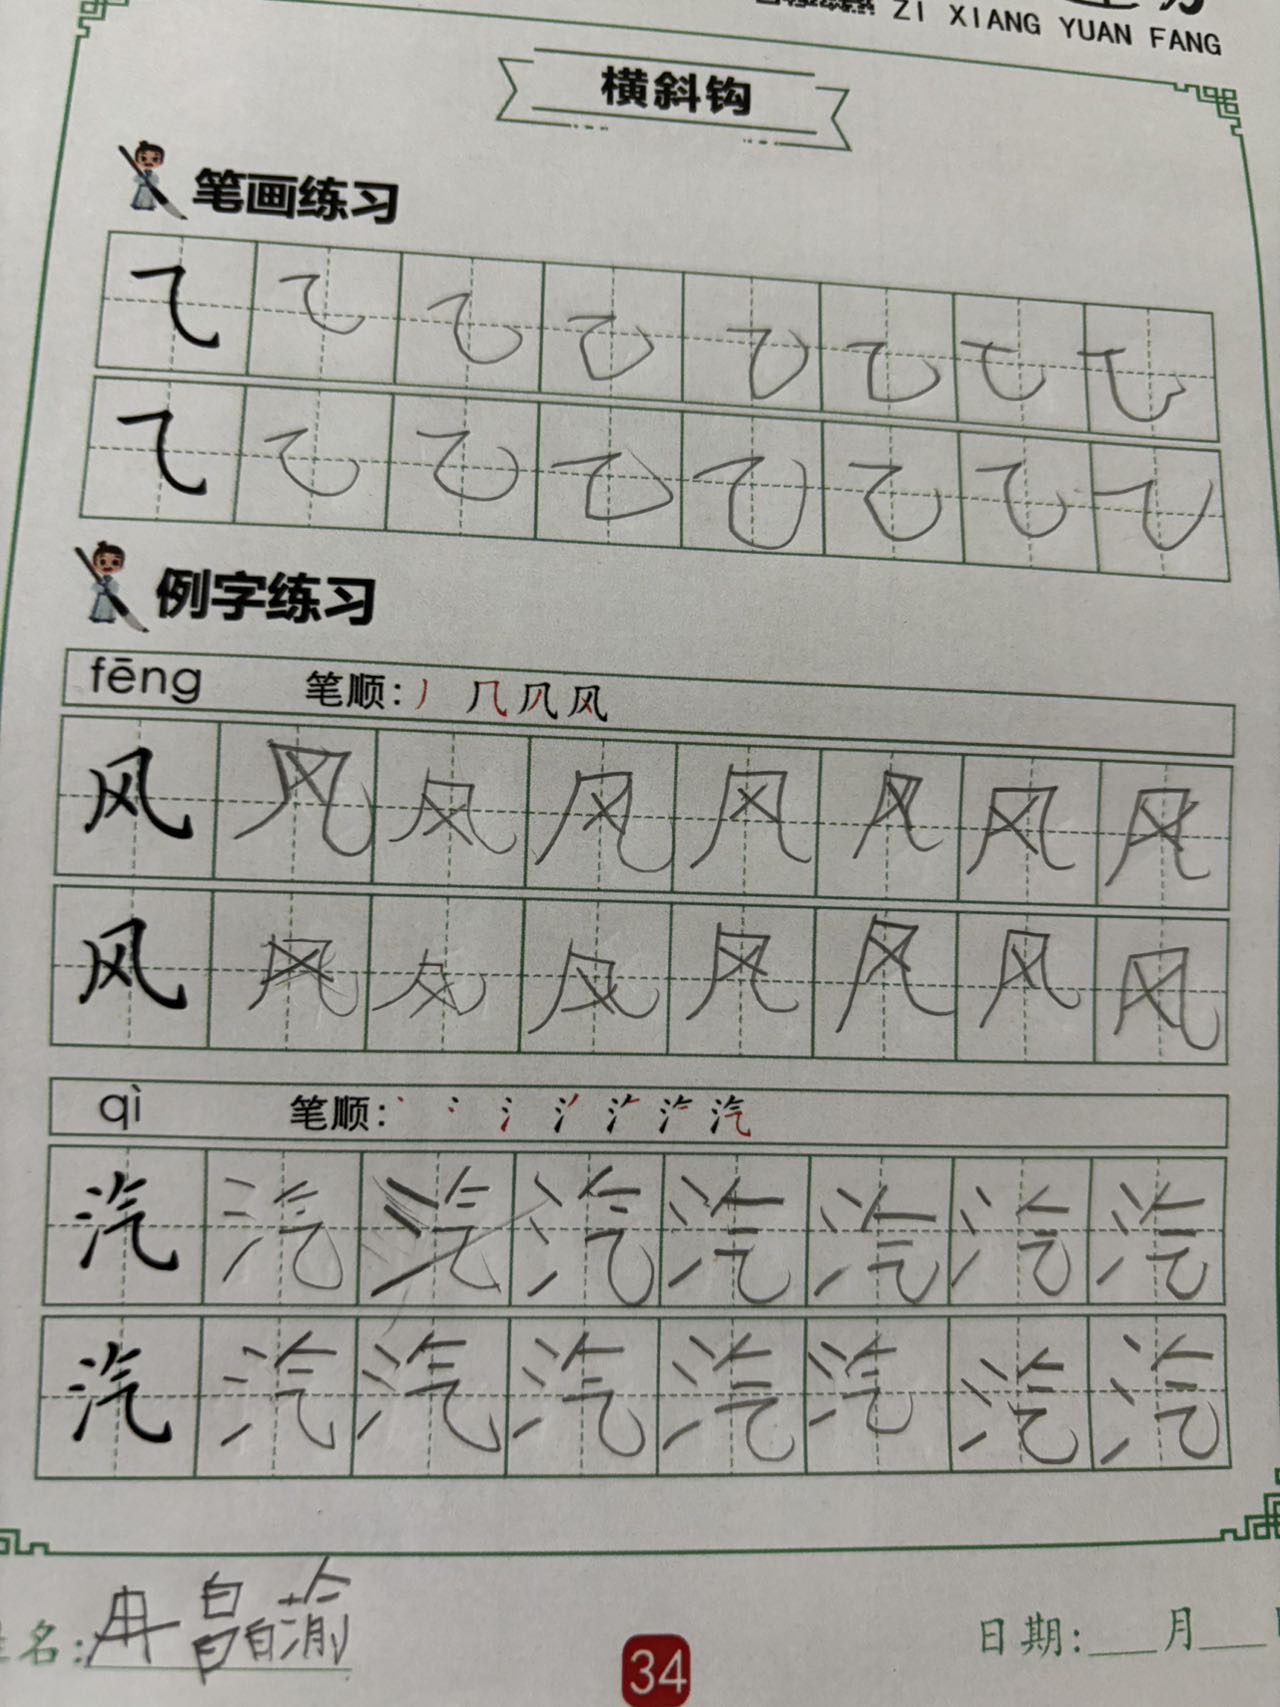 ZI XIANG YUAN FANG
横斜钩
笔画练习
㇈ ㇈ ㇈ ㇈ ㇈ ㇈ ㇈ ㇈
㇈ ㇈ ㇈ ㇈ ㇈ ㇈ ㇈ ㇈
例字练习
fēng 笔顺: 丿 几 风
风 风 风 风 风 风 风 风
风 风 风 风 风 风 风 风
qì 笔顺: 丶 冫 氵 汽
汽 汽 汽 汽 汽 汽 汽 汽
汽 汽 汽 汽 汽 汽 汽 汽
名: 冉
日期: 月
34